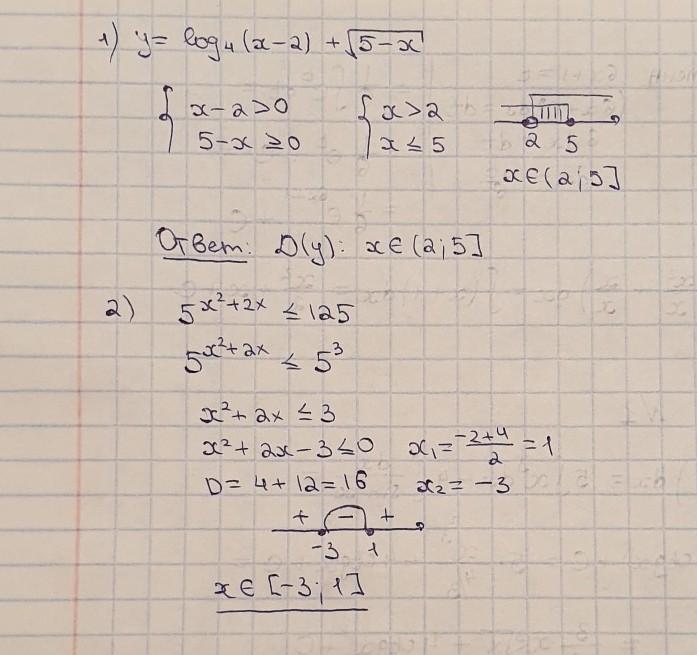 1) y = log₄(x-2) + √(5-x)
{ x-2>0 { x>2
5-x ≥0 x ≤ 5
2 5
x∈(2;5]
Ответ: D(y): x∈(2;5]
2) 5^(x²+2x) ≤ 125
5^(x²+2x) ≤ 5³
x²+2x ≤ 3
x²+2x-3≤0 x₁=(-2+4)/2=1
D=4+12=16 x₂=-3
+ - +
-3 1
x∈[-3;1]